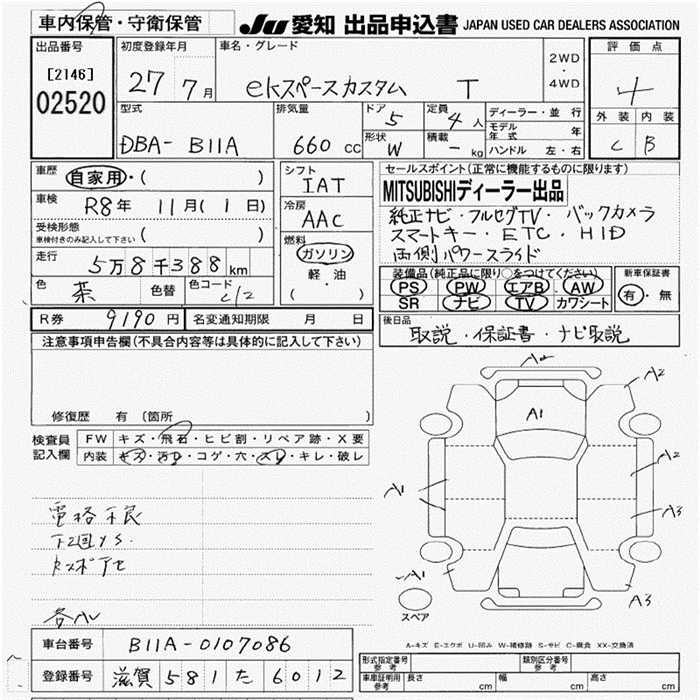 車内保管・守衛保管
JU 愛知 出品申込書 JAPAN USED CAR DEALERS ASSOCIATION
出品番号 初度登録年月 車名・グレード 評価点
[2146] 27年 7月 ekスペースカスタム T 2WD・4WD 4
02520 外装 内装
型式 排気量 ドア 5 定員 4人 ディーラー・並行
DBA- B11A 660cc 形状 W 積載 - kg モデル年式 年 C B
ハンドル 左・右
車歴 自家用・( ) シフト セールスポイント(正常に機能するものに限ります)
IAT MITSUBISHIディーラー出品
車検 R8年 11月(1日) 冷房 純正ナビ・フルセグTV・バックカメラ
AAC スマートキー・ETC・HID
受検形態 ( ) 燃料 両側パワースライド
車検付きのみ記入して下さい ガソリン
走行 5万8千388km 軽・油 装備品(純正品に限り○をつけてください) 新車保証書
色 茶 色替 色コード C12 ( ) PS PW エアB AW 有・無
SR ナビ TV カワシート
R券 9190円 名変通知期限 月 日 後日品
取説・保証書・ナビ取説
注意事項申告欄(不具合内容等は具体的に記入して下さい)
修復歴 有 〔箇所 〕
検査員記入欄 FW キズ・飛石・ヒビ割・リペア跡・X要
内装 キズ・汚れ・コゲ・穴・スレ・キレ・破レ
A2
A1
A2
A2
A1
A3
A1
A3
スペア
電格不良
下回りS.
各AL
A-キズ E-エクボ U-凹み W-補修跡 S-サビ C-腐食 XX-交換済
車台番号 B11A-0107086
登録番号 滋賀 581 た 6012
形式指定番号 参考 類別区分番号 参考
車庫証明用 参考 長さ cm 幅 cm 高さ cm